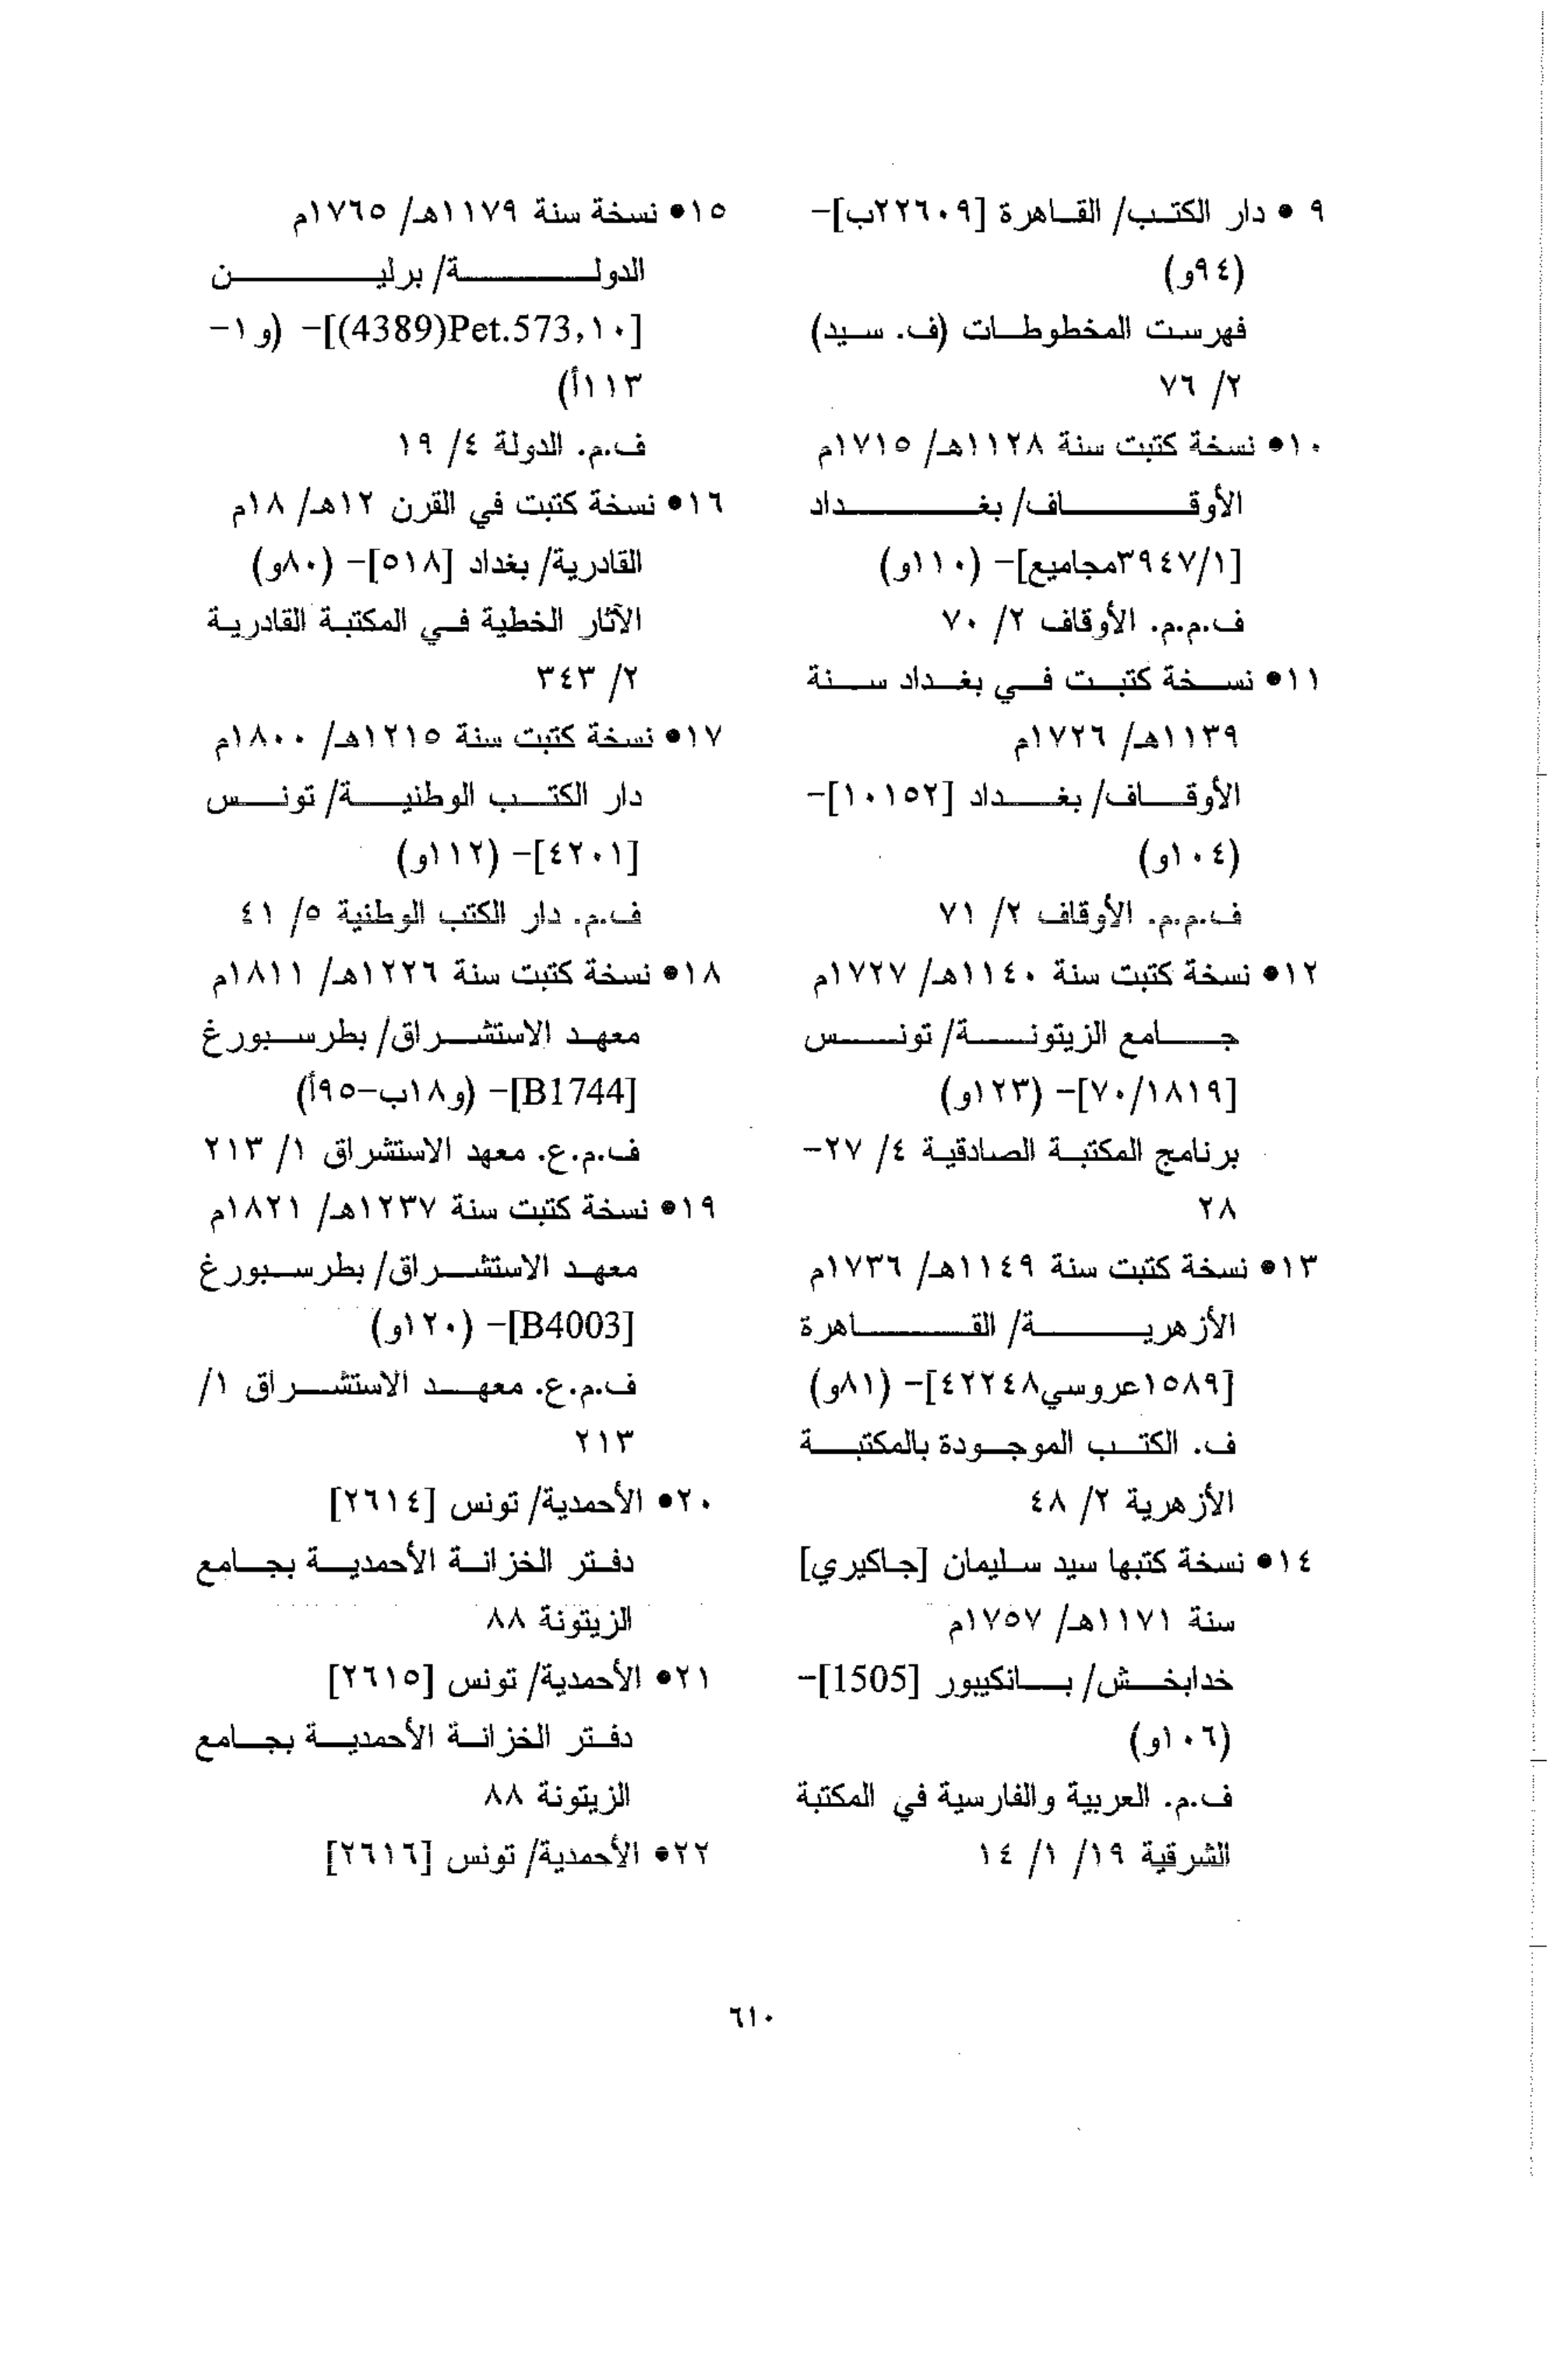 ٩ • دار الكتب/ القاهرة [٢٢٦٠٩ب]-
(٩٤و)
فهرست المخطوطات (ف. سيد)
٢/ ٧٦
١٠• نسخة كتبت سنة ١١٢٨هـ/ ١٧١٥م
الأوقاف/ بغداد
[٣٩٤٧/١مجاميع]- (١١٠و)
ف.م.م. الأوقاف ٢/ ٧٠
١١• نسخة كتبت في بغداد سنة
١١٣٩هـ/ ١٧٢٦م
الأوقاف/ بغداد [١٠١٥٢]-
(١٠٤و)
ف.م.م. الأوقاف ٢/ ٧١
١٢• نسخة كتبت سنة ١١٤٠هـ/ ١٧٢٧م
جامع الزيتونة/ تونس
[٧٠/١٨١٩]- (١٢٣و)
برنامج المكتبة الصادقية ٤/ ٢٧-
٢٨
١٣• نسخة كتبت سنة ١١٤٩هـ/ ١٧٣٦م
الأزهرية/ القاهرة
[١٥٨٩عروسي٤٢٢٤٨]- (٨١و)
ف. الكتب الموجودة بالمكتبة
الأزهرية ٢/ ٤٨
١٤• نسخة كتبها سيد سليمان [جاكيري]
سنة ١١٧١هـ/ ١٧٥٧م
خدابخش/ بانكيبور [1505]-
(١٠٦و)
ف.م. العربية والفارسية في المكتبة
الشرقية ١٩/ ١/ ١٤
١٥• نسخة سنة ١١٧٩هـ/ ١٧٦٥م
الدولة/ برلين
[١٠,Pet.573(4389)]- (و١-
١١٣أ)
ف.م. الدولة ٤/ ١٩
١٦• نسخة كتبت في القرن ١٢هـ/ ١٨م
القادرية/ بغداد [٥١٨]- (٨٠و)
الآثار الخطية في المكتبة القادرية
٢/ ٣٤٣
١٧• نسخة كتبت سنة ١٢١٥هـ/ ١٨٠٠م
دار الكتب الوطنية/ تونس
[٤٢٠١]- (١١٢و)
ف.م. دار الكتب الوطنية ٥/ ٤١
١٨• نسخة كتبت سنة ١٢٢٦هـ/ ١٨١١م
معهد الاستشراق/ بطرسبورغ
[B1744]- (و١٨ب-٩٥أ)
ف.م.ع. معهد الاستشراق ١/ ٢١٣
١٩• نسخة كتبت سنة ١٢٣٧هـ/ ١٨٢١م
معهد الاستشراق/ بطرسبورغ
[B4003]- (١٢٠و)
ف.م.ع. معهد الاستشراق ١/
٢١٣
٢٠• الأحمدية/ تونس [٢٦١٤]
دفتر الخزانة الأحمدية بجامع
الزيتونة ٨٨
٢١• الأحمدية/ تونس [٢٦١٥]
دفتر الخزانة الأحمدية بجامع
الزيتونة ٨٨
٢٢• الأحمدية/ تونس [٢٦١٦]
٦١٠